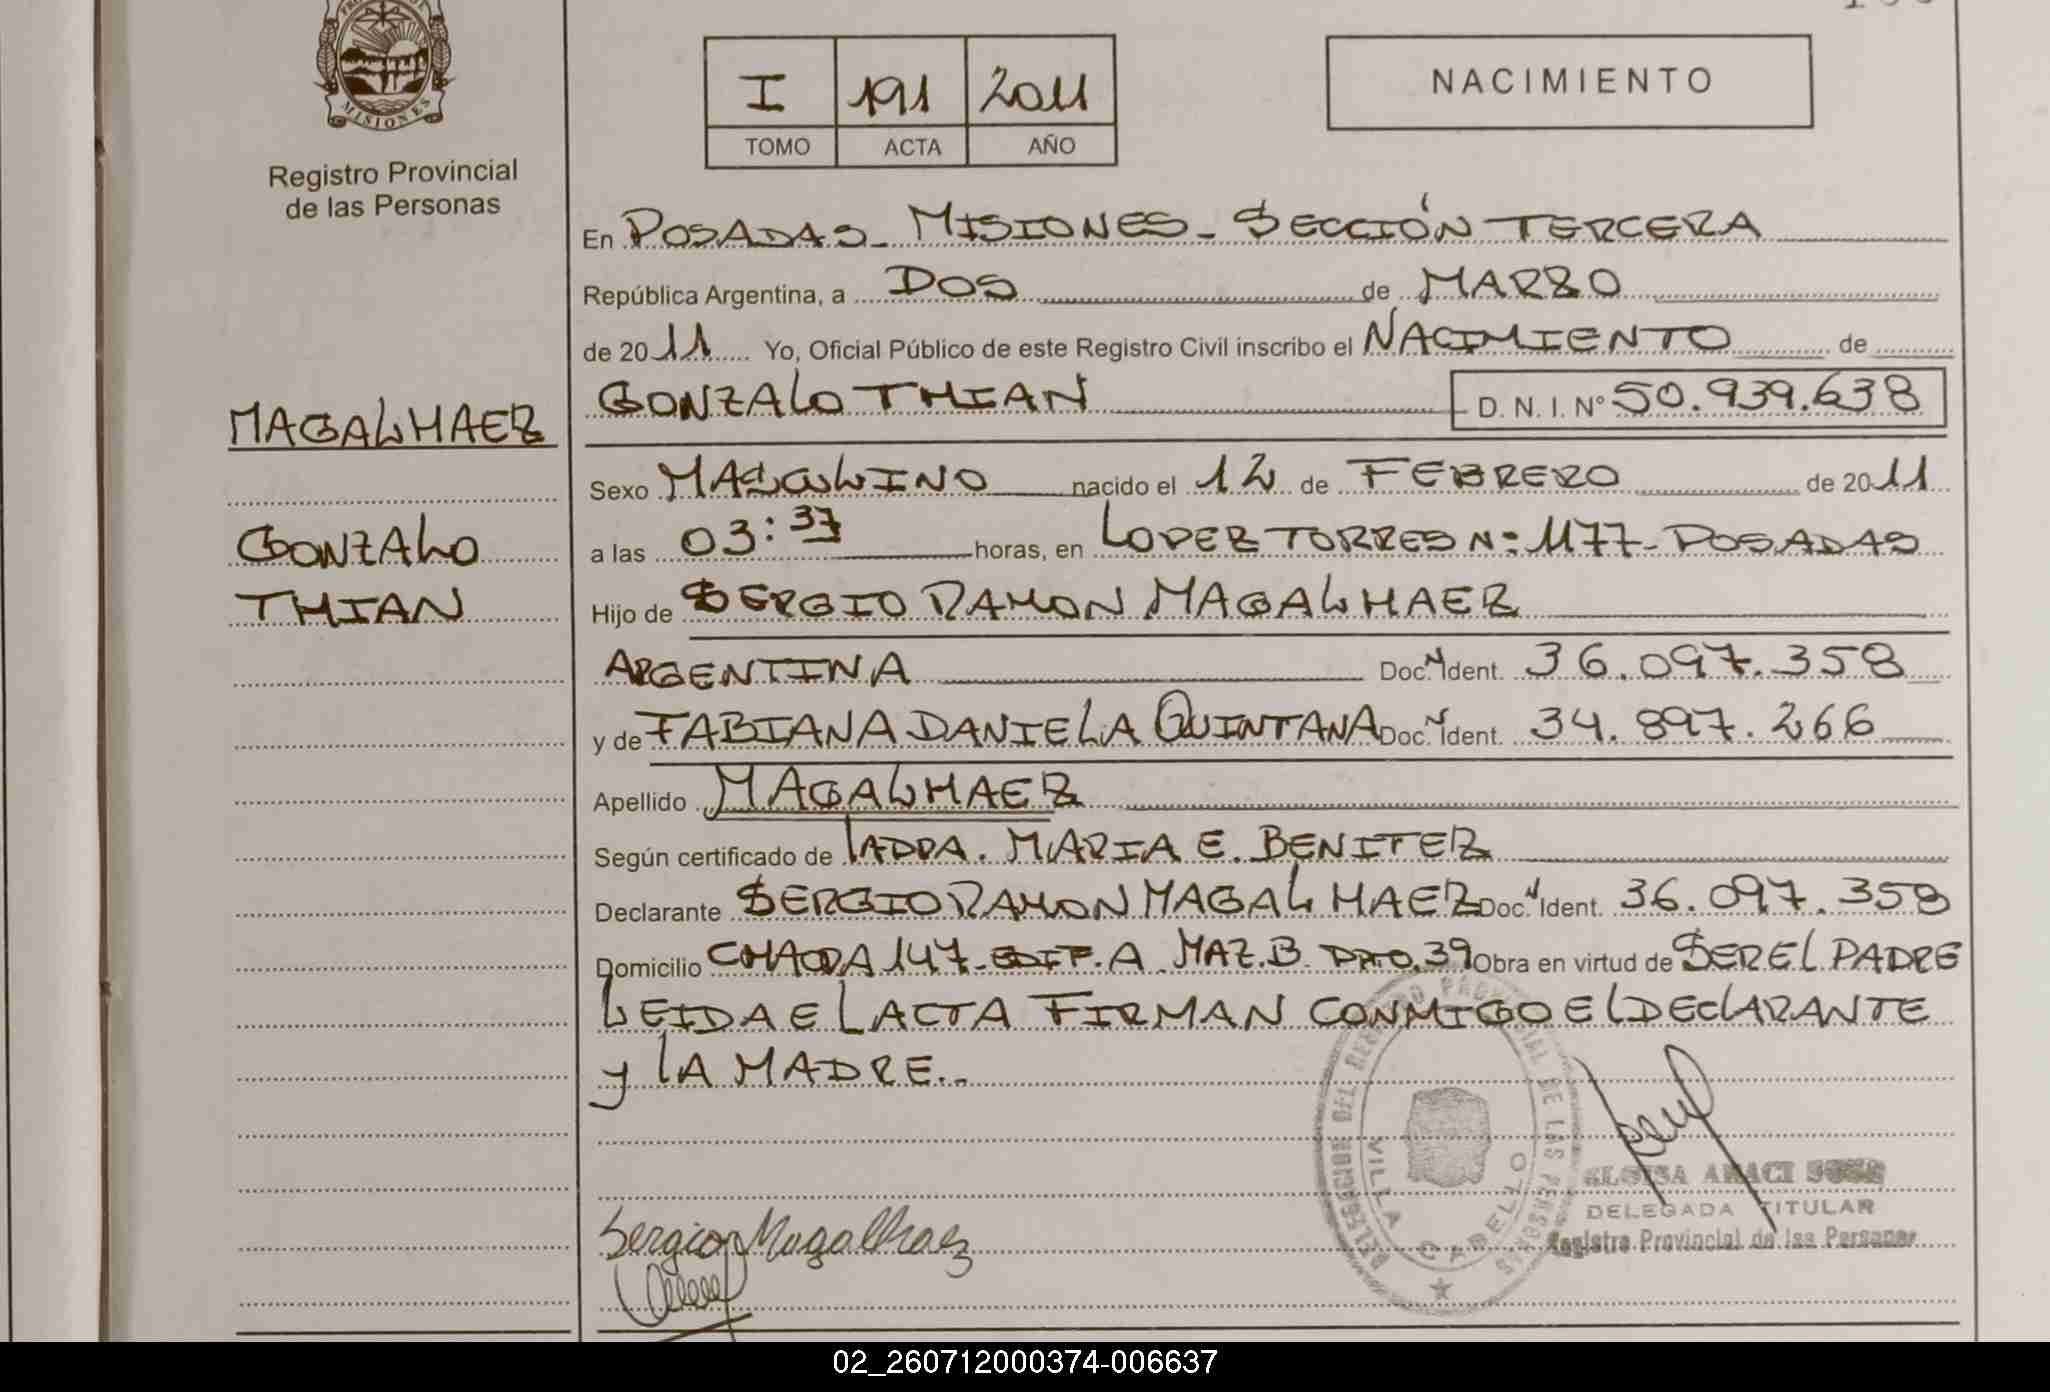 MISIONES
Registro Provincial
de las Personas
I 191 2011
TOMO ACTA AÑO
NACIMIENTO
En POSADAS - MISIONES - SECCIÓN TERCERA
República Argentina, a DOS de MARZO
de 2011 Yo, Oficial Público de este Registro Civil inscribo el NACIMIENTO de
GONZALO THIAN D. N. I. Nº 50.939.638
MAGALHAEZ
GONZALO
THIAN
Sexo MASCULINO nacido el 12 de FEBRERO de 2011
a las 03:37 horas, en LOPEZ TORRES Nº 1177 - POSADAS
Hijo de SERGIO RAMON MAGALHAEZ
ARGENTINA Doc. N Ident. 36.097.358
y de FABIANA DANIELA QUINTANA Doc. N Ident. 34.897.266
Apellido MAGALHAEZ
Según certificado de MARIA E. BENITEZ
Declarante SERGIO RAMON MAGALHAEZ Doc. N Ident. 36.097.358
Domicilio CHACRA 147 - EDIF. A MAZ. B DTO. 39 Obra en virtud de SER EL PADRE
LEIDA EL ACTA FIRMAN CONMIGO EL DECLARANTE
y LA MADRE.-
DELEGACION DEL REGISTRO PROVINCIAL DE LAS PERSONAS
VILLA CABELLO
ELOISA ARACI
DELEGADA TITULAR
Registro Provincial de las Personas
Sergio Magalhaez
02_260712000374-006637